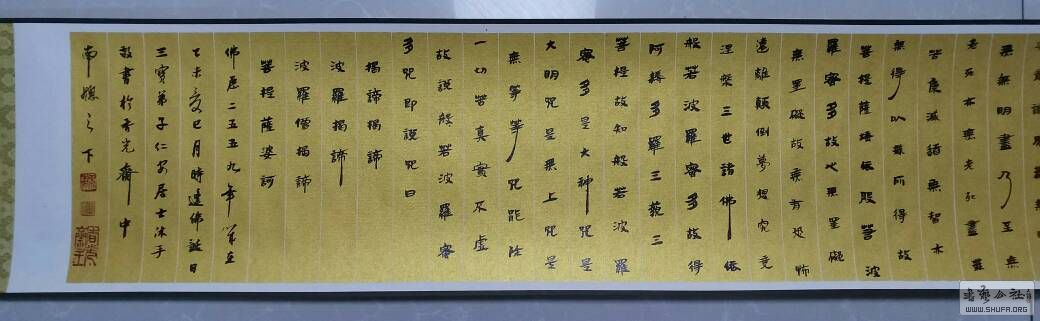 無無明盡乃至無
老死亦無老死盡無
苦集滅道無智亦
無得以無所得故
菩提薩埵依般若波
羅蜜多故心無罣礙
無罣礙故無有恐怖
遠離顛倒夢想究竟
涅槃三世諸佛依
般若波羅蜜多故得
阿耨多羅三藐三
菩提故知般若波羅
蜜多是大神咒是
大明咒是無上咒是
無等等咒能除
一切苦真實不虛
故說般若波羅蜜
多咒即說咒曰
揭諦揭諦
波羅揭諦
波羅僧揭諦
菩提薩婆訶
佛歷二五五九年歲在
乙未辛巳月時逢佛誕日
三寶弟子仁安居士沐手
敬書於香光齋中
南牕之下
WWW.SHUFA.ORG